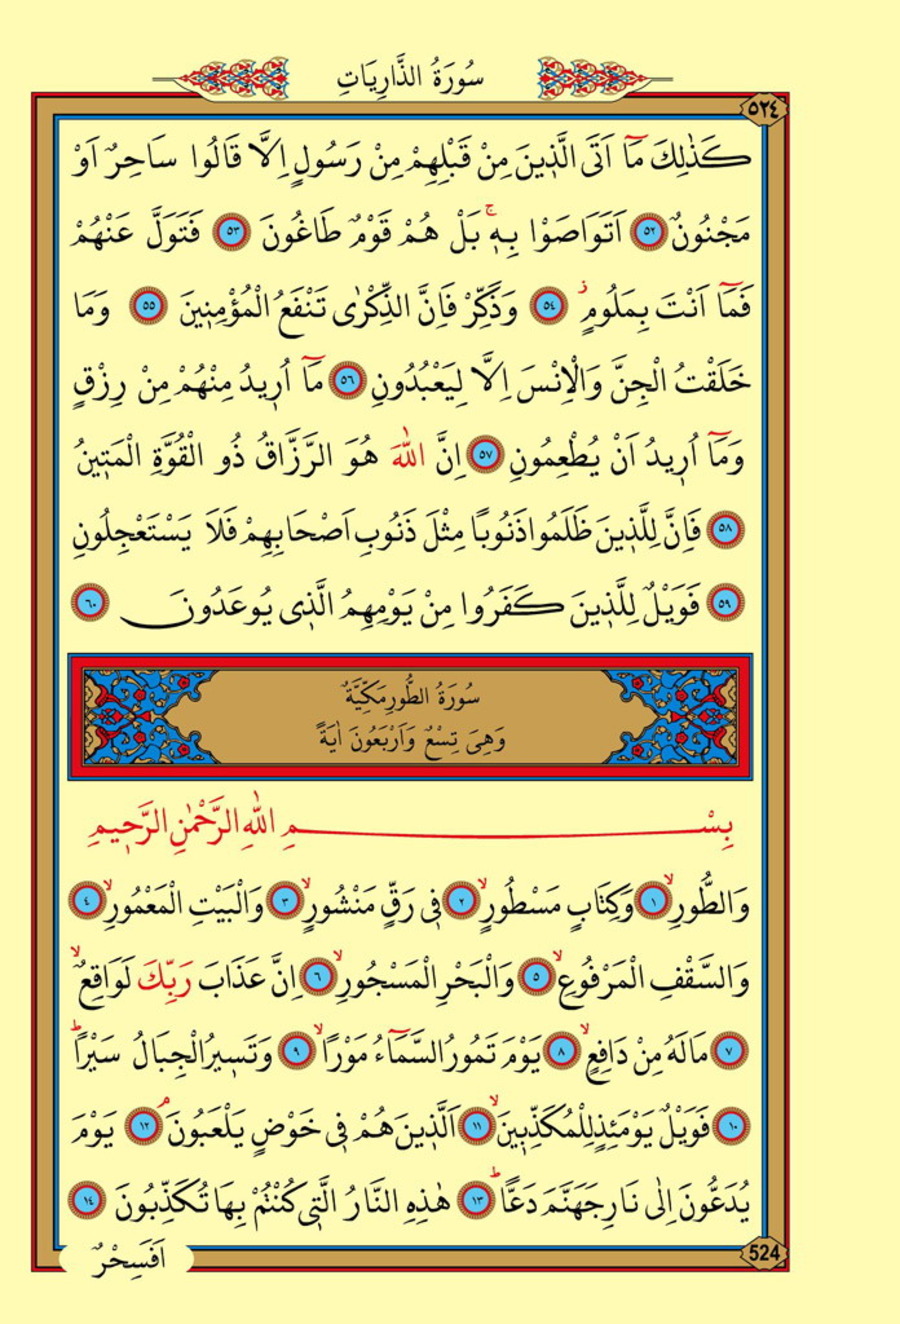 سُورَةُ الذَّارِيَاتِ
٥٢٤
كَذٰلِكَ مَٓا اَتَى الَّذ۪ينَ مِنْ قَبْلِهِمْ مِنْ رَسُولٍ اِلَّا قَالُوا سَاحِرٌ اَوْ
مَجْنُونٌ ﴿٥٢﴾ اَتَوَاصَوْا بِه۪ۚ بَلْ هُمْ قَوْمٌ طَاغُونَ ﴿٥٣﴾ فَتَوَلَّ عَنْهُمْ
فَمَٓا اَنْتَ بِمَلُومٍۘ ﴿٥٤﴾ وَذَكِّرْ فَاِنَّ الذِّكْرٰى تَنْفَعُ الْمُؤْمِن۪ينَ ﴿٥٥﴾ وَمَا
خَلَقْتُ الْجِنَّ وَالْاِنْسَ اِلَّا لِيَعْبُدُونِ ﴿٥٦﴾ مَٓا اُر۪يدُ مِنْهُمْ مِنْ رِزْقٍ
وَمَٓا اُر۪يدُ اَنْ يُطْعِمُونِ ﴿٥٧﴾ اِنَّ اللّٰهَ هُوَ الرَّزَّاقُ ذُو الْقُوَّةِ الْمَت۪ينُ
﴿٥٨﴾ فَاِنَّ لِلَّذ۪ينَ ظَلَمُوا ذَنُوبًا مِثْلَ ذَنُوبِ اَصْحَابِهِمْ فَلَا يَسْتَعْجِلُونِ
﴿٥٩﴾ فَوَيْلٌ لِلَّذ۪ينَ كَفَرُوا مِنْ يَوْمِهِمُ الَّذ۪ى يُوعَدُونَ ﴿٦٠﴾
سُورَةُ الطُّورِ مَكِّيَّةٌ
وَهِىَ تِسْعٌ وَاَرْبَعُونَ اٰيَةً
بِسْمِ اللّٰهِ الرَّحْمٰنِ الرَّح۪يمِ
وَالطُّورِۙ ﴿١﴾ وَكِتَابٍ مَسْطُورٍۙ ﴿٢﴾ ف۪ى رَقٍّ مَنْشُورٍۙ ﴿٣﴾ وَالْبَيْتِ الْمَعْمُورِۙ ﴿٤﴾
وَالسَّقْفِ الْمَرْفُوعِۙ ﴿٥﴾ وَالْبَحْرِ الْمَسْجُورِۙ ﴿٦﴾ اِنَّ عَذَابَ رَبِّكَ لَوَاقِعٌۙ
﴿٧﴾ مَالَهُ مِنْ دَافِعٍۙ ﴿٨﴾ يَوْمَ تَمُورُ السَّمَٓاءُ مَوْرًاۙ ﴿٩﴾ وَتَس۪يرُ الْجِبَالُ سَيْرًاۜ
﴿١٠﴾ فَوَيْلٌ يَوْمَئِذٍ لِلْمُكَذِّب۪ينَۙ ﴿١١﴾ اَلَّذ۪ينَ هُمْ ف۪ى خَوْضٍ يَلْعَبُونَۢ ﴿١٢﴾ يَوْمَ
يُدَعُّونَ اِلٰى نَارِ جَهَنَّمَ دَعًّاۜ ﴿١٣﴾ هٰذِهِ النَّارُ الَّت۪ى كُنْتُمْ بِهَا تُكَذِّبُونَ ﴿١٤﴾
اَفَسِحْرٌ
524